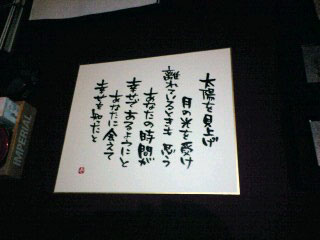 太陽を見上げ
月の光を受け
離れているときも思う
あなたの時間が
幸せであるようにと
あなたに会えて
幸せを知ったと
IMPERIAL